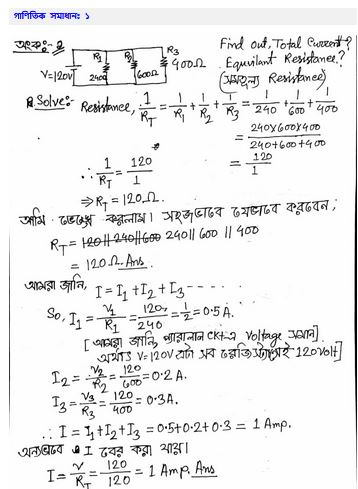 গাণিতিক সমাধানঃ ১
অংকঃ- ২
R₁ R₂ R₃
V=120V 240Ω 600Ω 400Ω
Find out, Total Current?
Equivilant Resistance?
(সমতুল্য Resistance)
Solve:- Resistance, 1/R_T = 1/R₁ + 1/R₂ + 1/R₃ = 1/240 + 1/600 + 1/400
= 240×600×400 / 240+600+400
∴ 1/R_T = 120/1 = 120/1
⇒ R_T = 120Ω.
আমি ভেঙ্গে করলাম। সহজভাবে যেভাবে করবেন;
R_T = 120||240||600 240||600||400
= 120Ω Ans.
আমরা জানি, I = I₁ + I₂ + I₃ - - - - -
So, I₁ = V₁/R₁ = 120/240 = 1/2 = 0.5A.
[আমরা জানি, প্যারালাল CKT এ Voltage সমান]
অর্থাৎ V=120V তাই সব 120 Volt]
I₂ = V₂/R₂ = 120/600 = 0.2A.
I₃ = V₃/R₃ = 120/400 = 0.3A.
∴ I = I₁ + I₂ + I₃ = 0.5+0.2+0.3 = 1 Amp.
অন্যভাবে I বের করা যায়।
I = V/R_T = 120/120 = 1 Amp. Ans